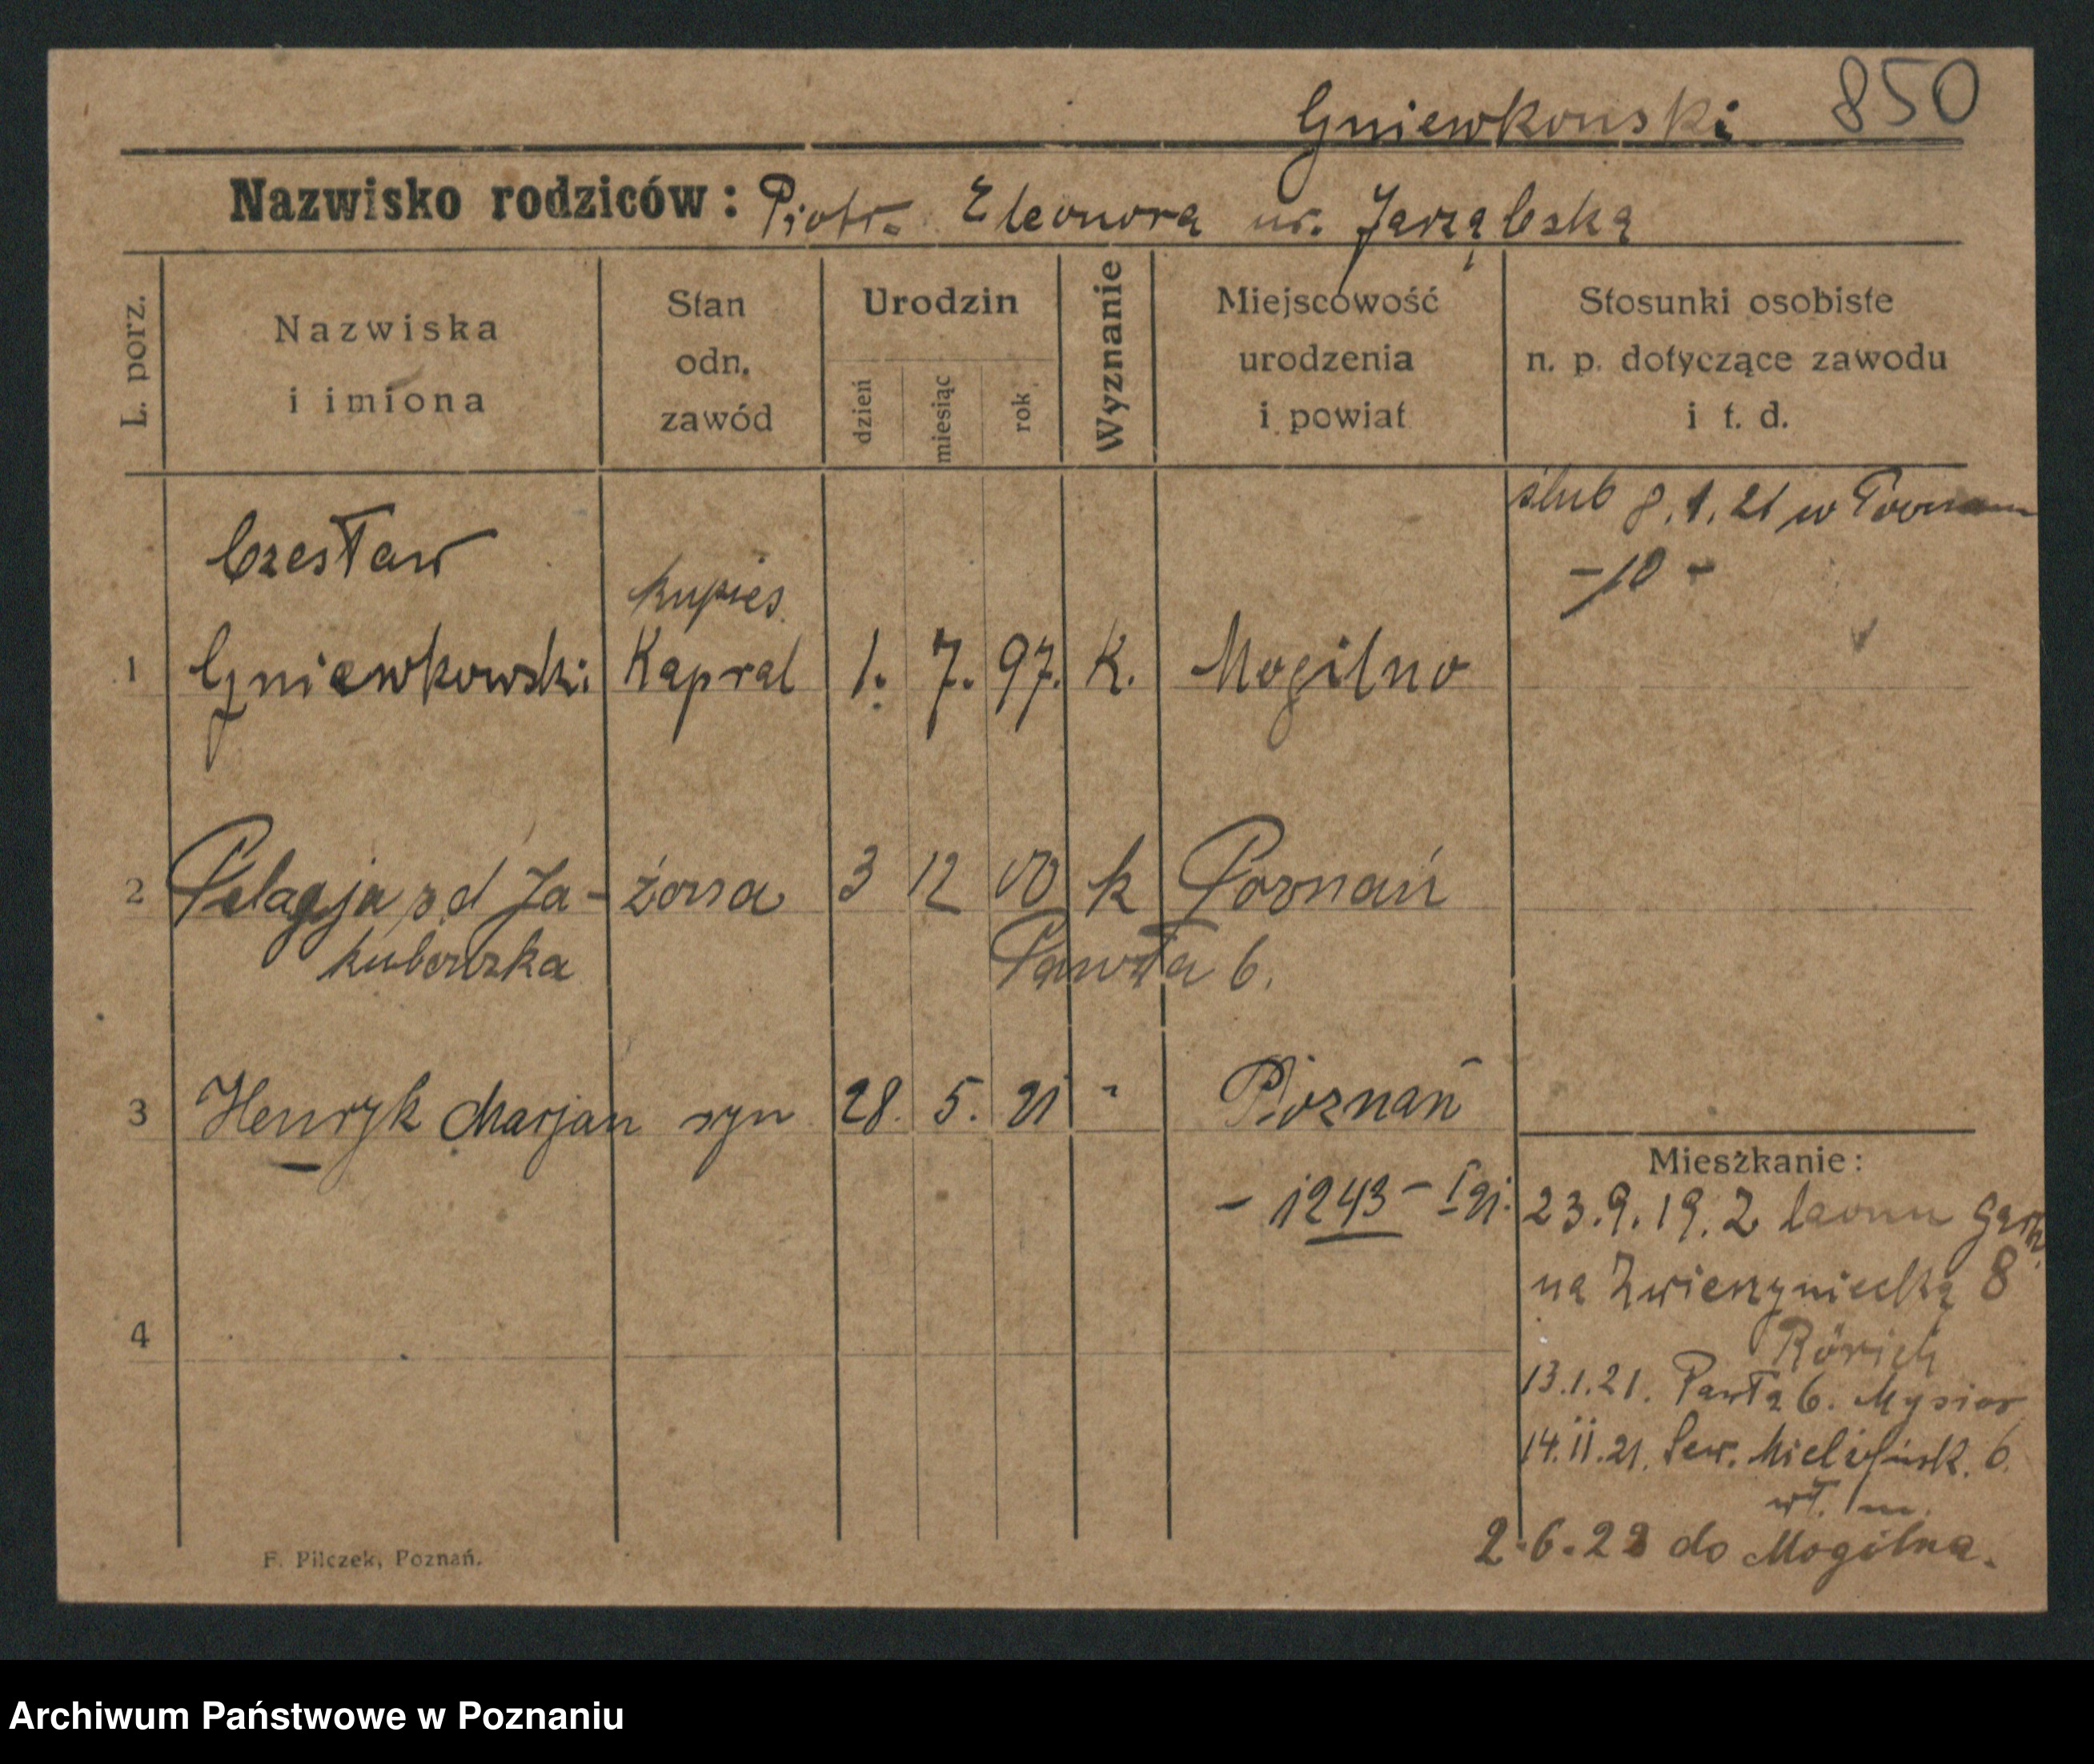 Gniewkowski 850
Nazwisko rodziców: Piotr. Eleonora ur. Jarząbska
L. porz.
Nazwiska
i imiona
Stan
odn.
zawód
Urodzin
dzień
miesiąc
rok
Wyznanie
Miejscowość
urodzenia
i powiat
Stosunki osobiste
n. p. dotyczące zawodu
i t. d.
ślub 8.1.21 w Poznan
-10-
Czesław
kupiec
1 Gniewkowski Kapral 1. 7. 97. K. Mogilno
2 Pelagja z d Ja- żona 3 12 00 k Poznań
kubowska Pawła 6.
3 Henryk Marjan syn 28. 5. 21 " Poznań
- 1243 - I 21.
4
Mieszkanie:
23.9.19. Z
na Zwierzyniecką 8
13.1.21. Pawła 6. Mysior
14.II.21. Sew. Mielżyńsk. 6.
wł. m.
2.6.22 do Mogilna.
F. Pilczek, Poznań.
Archiwum Państwowe w Poznaniu